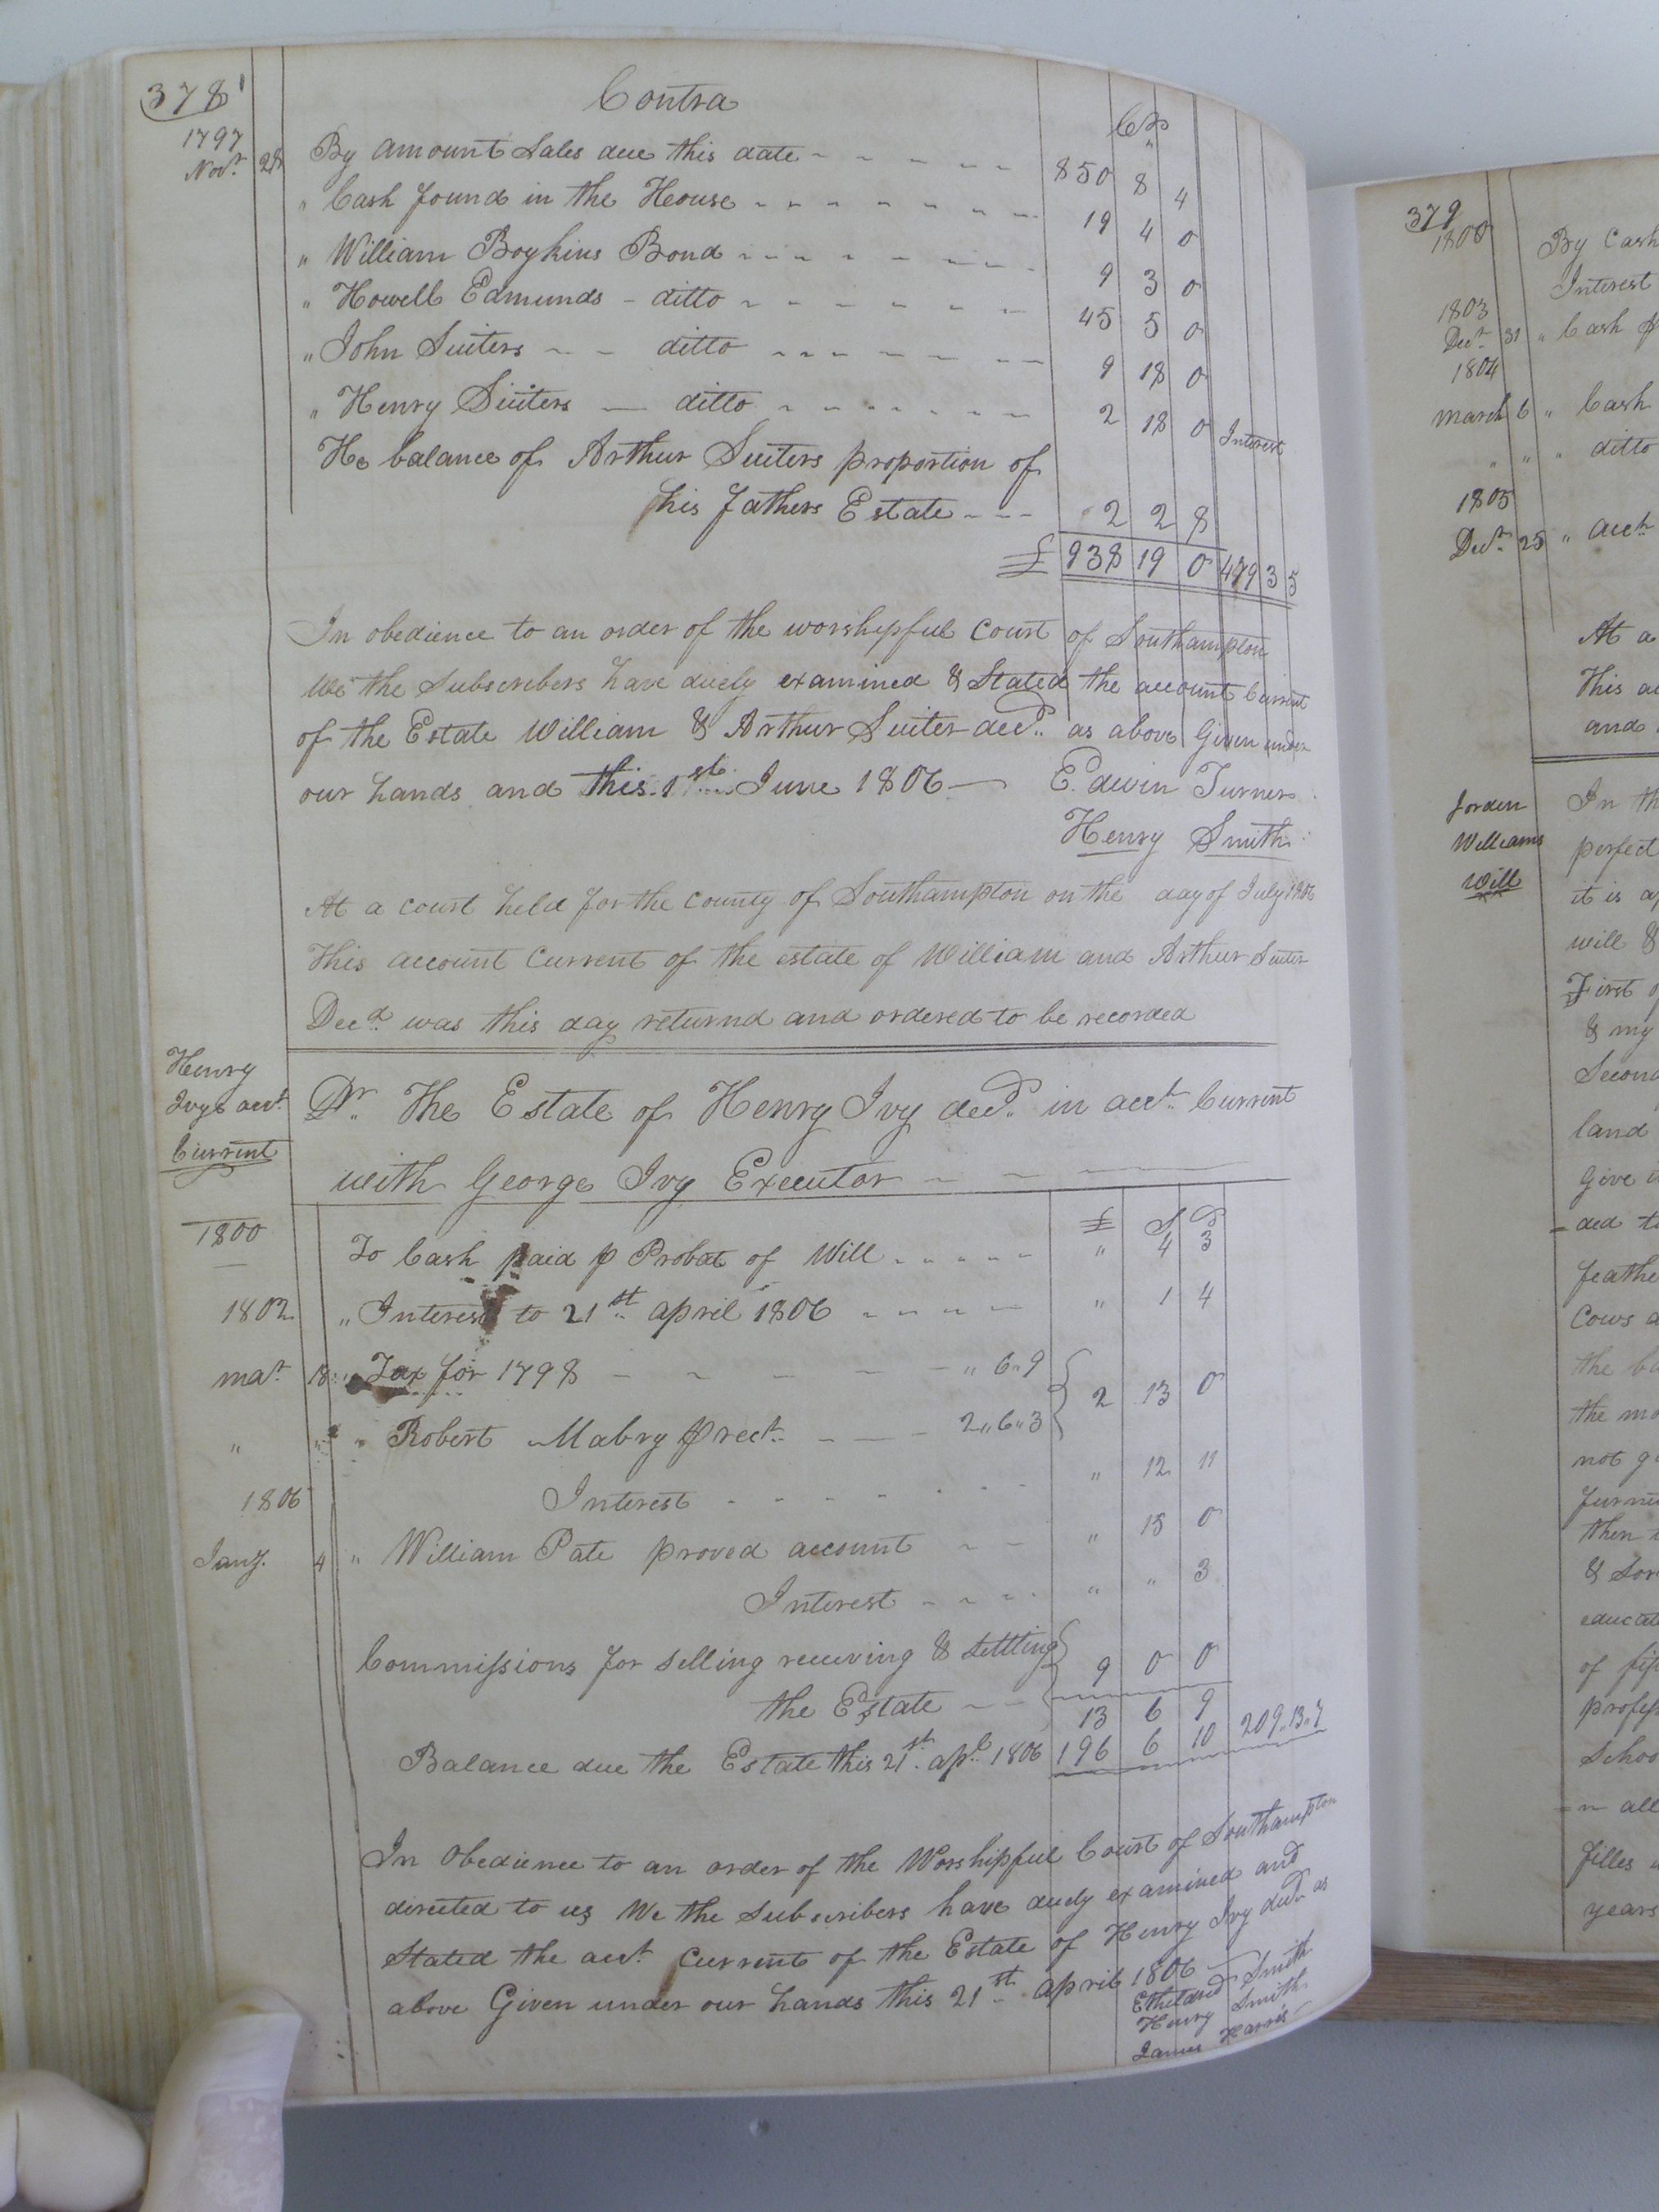 378
Contra Cr
1797
Novr. 28 By amount Sales due this date 850 8 4
" Cash found in the House 19 4 0
" William Boykins Bond 9 3 0
" Howell Edmunds - ditto 45 5 0
" John Suiters - - ditto 9 18 0
" Henry Suiters - ditto 2 18 0 Interest
balance of Arthur Suiters proportion of
his fathers Estate 2 2 8
£ 938 19 0 479 3 5
In obedience to an order of the worshipful Court of Southampton
We the Subscribers have duely examined & Stated the account Current
of the Estate William & Arthur Suiter decd. as above Given under
our hands and this 1st June 1806 Edwin Turner
Henry Smith
At a court held for the county of Southampton on the day of July 1806
This account Current of the estate of William and Arthur Suiter
Decd. was this day returnd and ordered to be recorded
Henry
Ivys acct.
Current
Dr. The Estate of Henry Ivy decd. in acct. Current
with George Ivy Executor
£ S D
1800 To Cash paid p Probat of Will " 4 3
1802 " Interest to 21st april 1806 " 1 4
mar 18 " Tax for 1798 " 6 " 9 } 2 13 0
" " " Robert Mabry p rect. 2 " 6 " 3
1806 Interest " 12 11
Jany. 4 " William Pate proved account " 15 0
Interest " " 3
Commissions for selling receiving & settling
the Estate 9 0 0
13 6 9
Balance due the Estate this 21st. apl. 1806 196 6 10 209 " 13 " 7
In Obedience to an order of the Worshipful Court of Southampton
directed to us We the Subscribers have duely examined and
Stated the acct. Current of the Estate of Henry Ivy decd as
above Given under our hands this 21st april 1806
Etheldred Smith
Henry Smith
James Harris
379
1800 By Cash
Interest
1803
Decr. 31 " Cash
1804
March 6 " Cash
" " " ditto
1805
Decr. 25 " acct.
At a
This
and
Jorden
Williams
Will
In
perfect
it is
will &
First
& my
Second
land
Give
= ded
feathe
Cows
the
the
not
furni
then
& Son
educat
of
profess
Schoo
= n all
filles
years